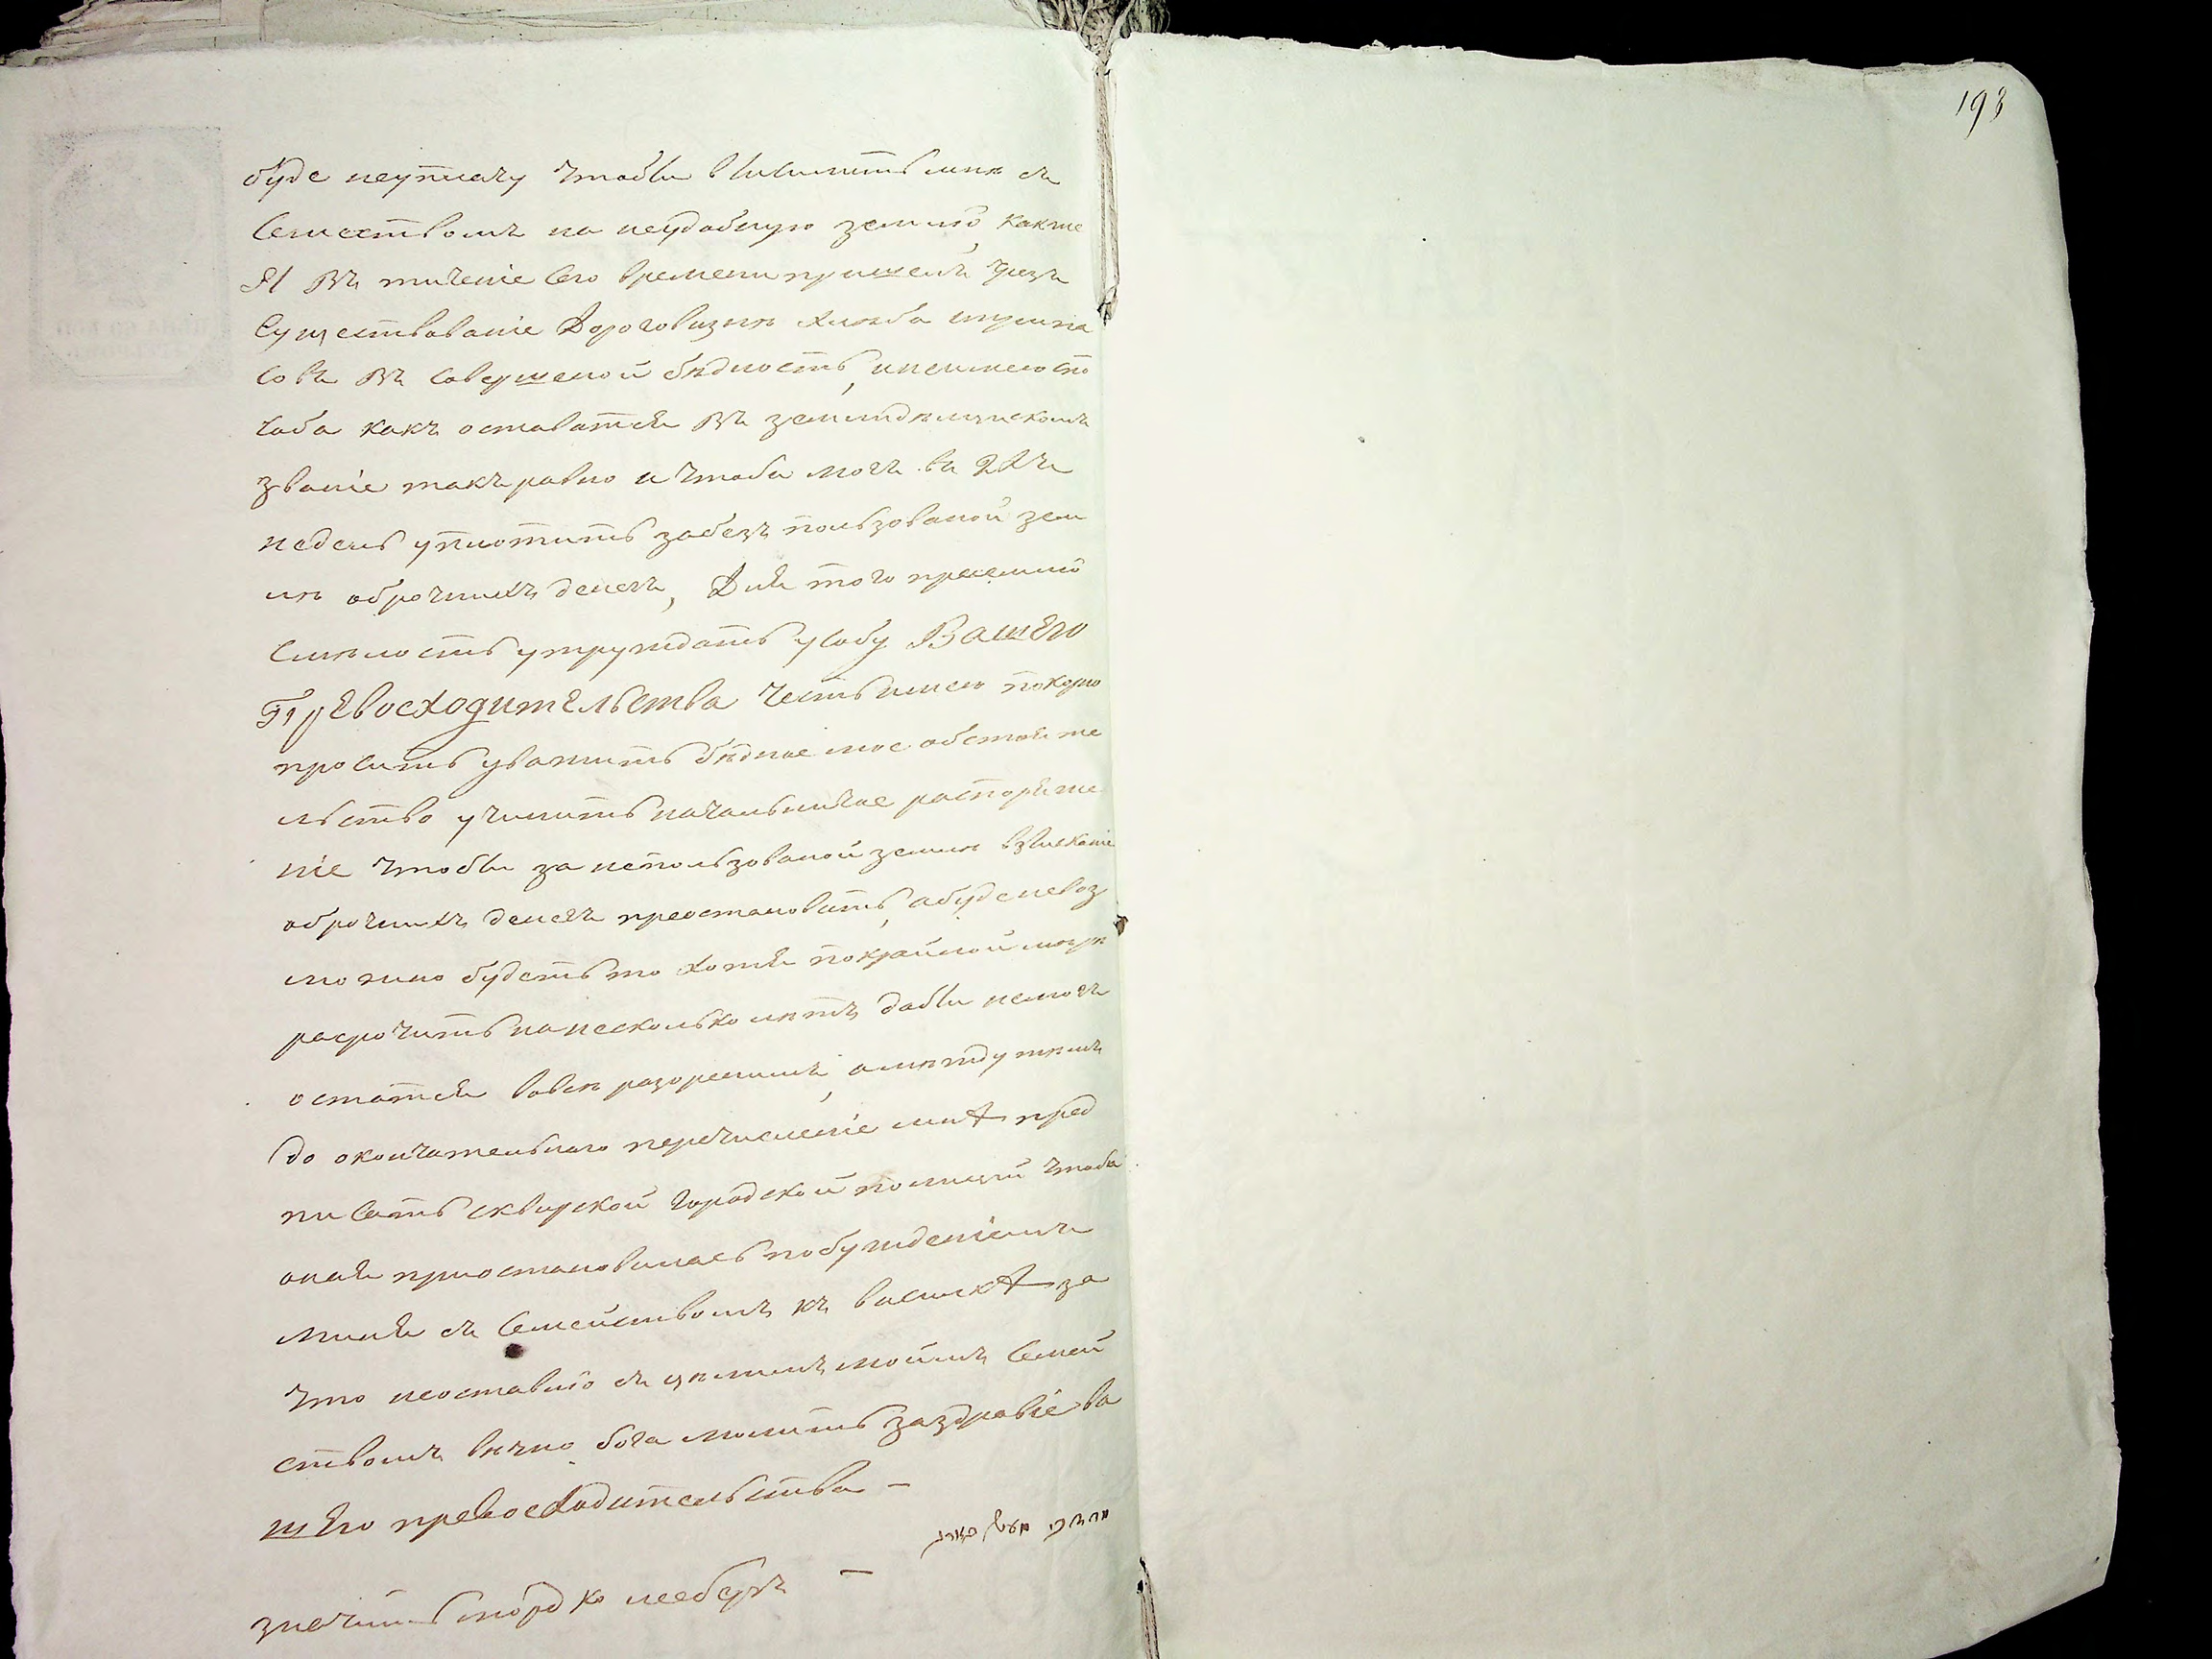 193
буде неуплачу чтобы виселить мнѣ съ
Семеством на неудобную землю, какже
Я въ течение сего времени пришелъ чрезъ
Существование Дороговизнѣ хлѣба
въ совершеной бѣдность, и неимею спо
соба какъ оставатся въ земледѣлческомъ
звание такъ равно и чтобы могъ въ 2хъ
недель уплотить забезъ ползованой зем
лѣ оброчныхъ денегъ, Для того приемлю
Смѣлость утруждать Особу Вашего
Превосходительства честь имею покорно
просить уважить бѣдное мое обстояте
льство учинить начальничое распоряже
ние чтобы за непользованой землѣ взыскание
оброчныхъ денегъ преостановить, абуде невоз
можно будеть то хотя покрайной мѣрѣ
расрочить на несколько лѣтъ дабы немогъ
остатся вовсѣ разоренимъ, амѣжду тѣмъ
до окончательного перечисление мнѣ пред
писать сквирской городской полиций чтобы
оная приостановилась побуждениемъ
миня съ Семействомъ къ висилкѣ за
что неоставлю съ цѣлимъ моимъ Семей
ствомъ вѣчно бога молить заздравие ва
шего превосходительства –
значить мордко –